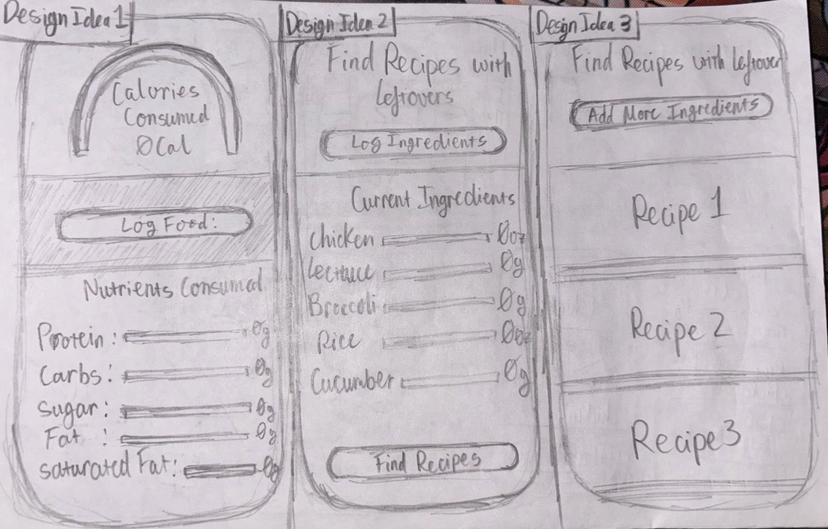 Design Idea 1
Calories
Consumed
0Cal
Log Food:
Nutrients Consumed
Protein: 0g
Carbs: 0g
Sugar: 0g
Fat : 0g
Saturated Fat: 0g
Design Idea 2
Find Recipes with
Leftovers
Log Ingredients
Current Ingredients
Chicken 0oz
Lecttuce 0g
Broccoli 0g
Rice 0oz
Cucumber 0g
Find Recipes
Design Idea 3
Find Recipes with Leftover
Add More Ingredients
Recipe 1
Recipe 2
Recipe 3